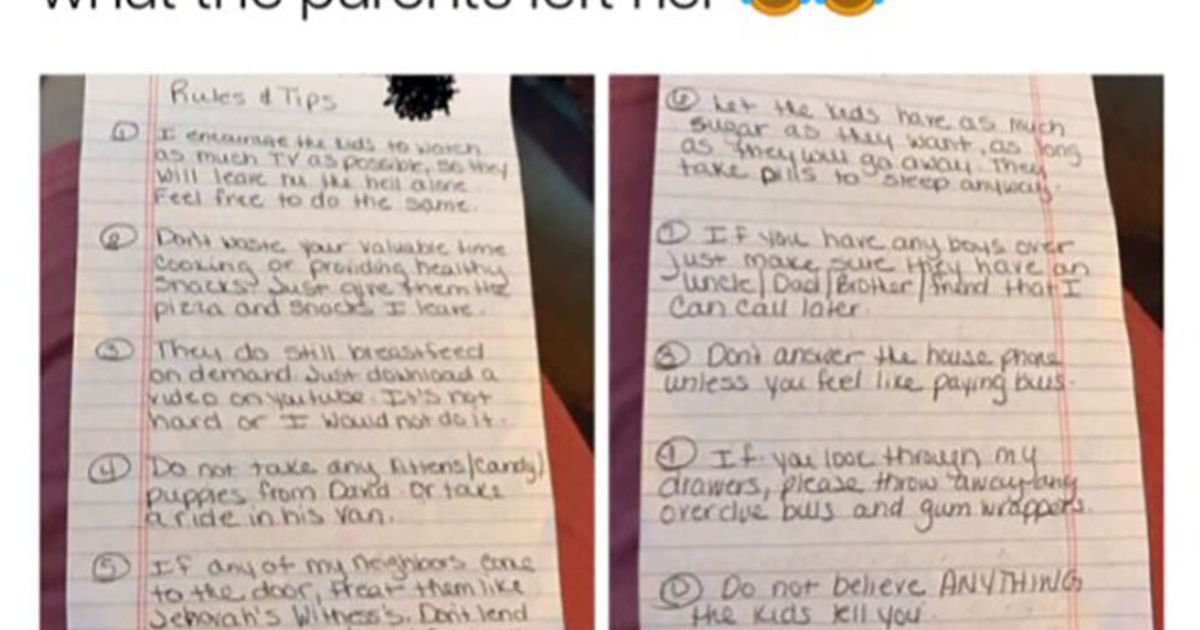 what the parents left her
Rules & Tips
① I encourage the kids to watch
as much TV as possible, so they
will leave me the hell alone
Feel free to do the same.
② Don't waste your valuable time
cooking or providing healthy
snacks? Just give them the
pizza and snacks I leave.
③ They do still breastfeed
on demand. Just download a
video on youtube. It's not
hard or I would not do it.
④ Do not take any kittens/candy/
puppies from David. Or take
a ride in his van.
⑤ If any of my neighbors come
to the door, treat them like
Jehovah's Witness's. Don't lend
⑥ Let the kids have as much
sugar as they want, as long
as they will go away. They
take pills to sleep anyway.
⑦ If you have any boys over
just make sure they have an
uncle/Dad/Brother/friend that I
can call later.
⑧ Don't answer the house phone
unless you feel like paying bills.
⑨ If you look through my
drawers, please throw away any
overdue bills and gum wrappers.
⑩ Do not believe ANYTHING
the kids tell you.